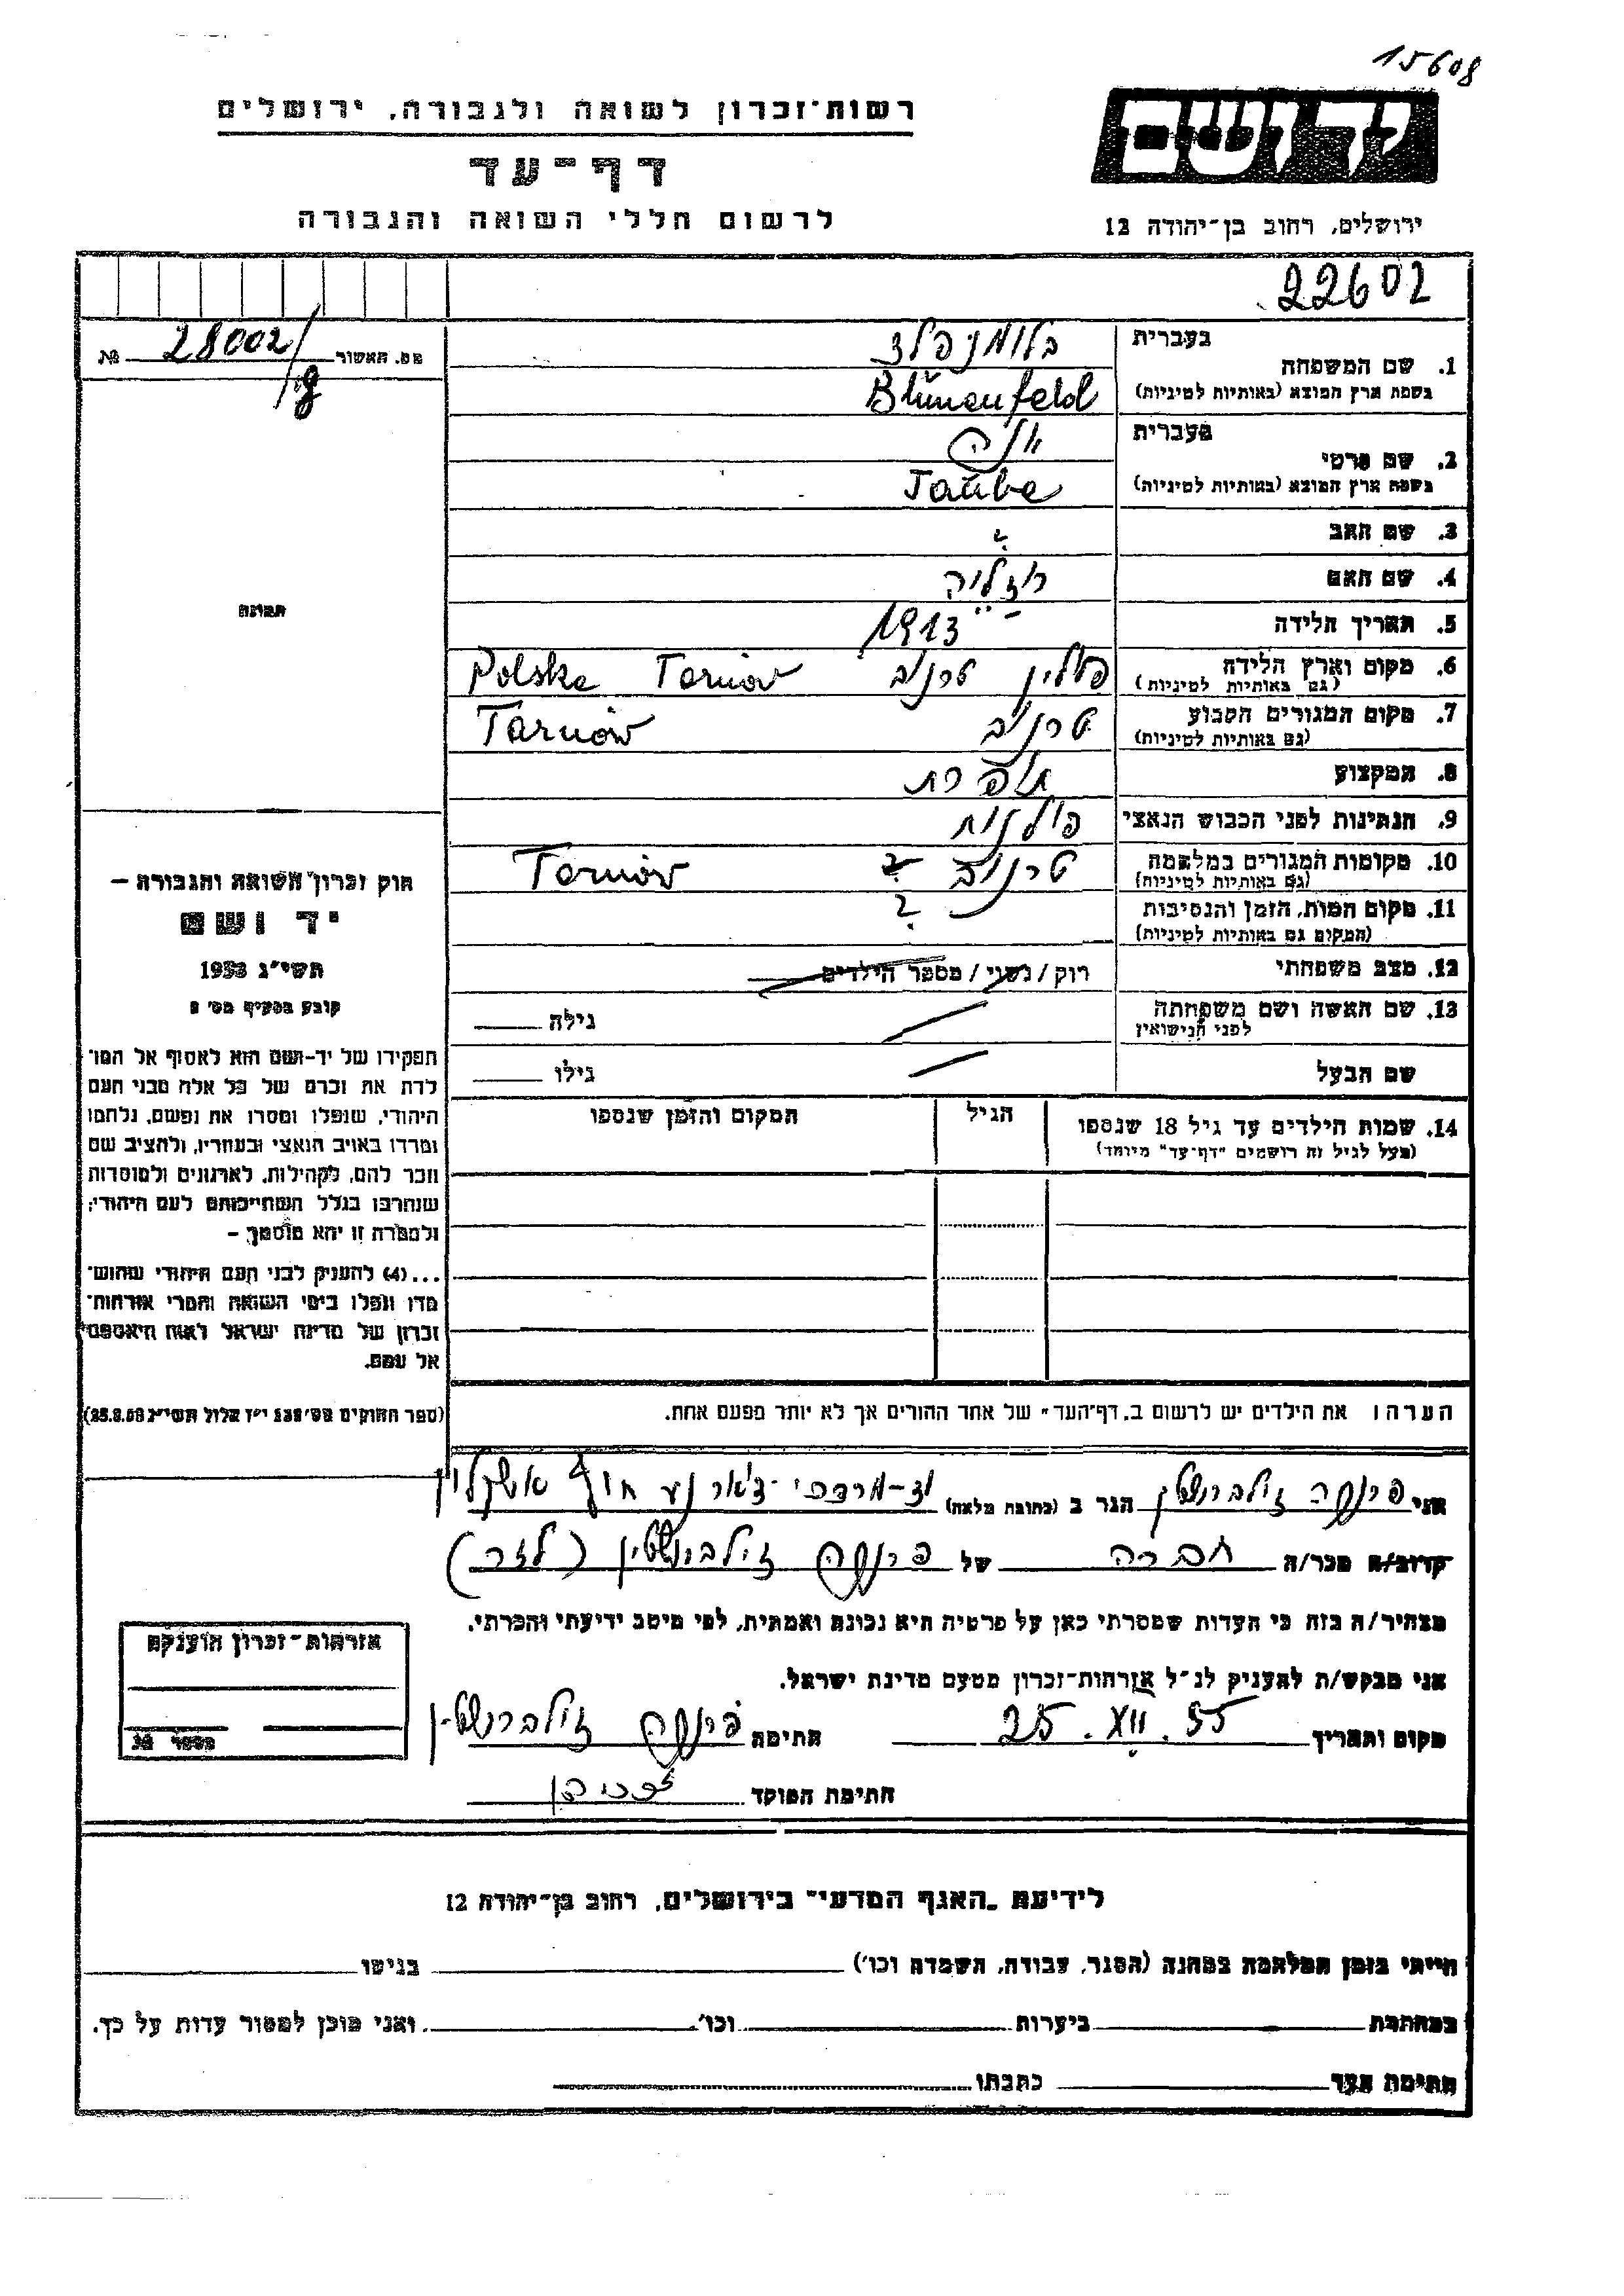 15608
רשות־זכרון לשואה ולגבורה, ירושלים
יד ושם
דף־עד
לרשום חללי השואה והגבורה
ירושלים, רחוב בן־יהודה 12
22602
מס. האשור 28002/ №
בעברית בלומנפלד
1. שם המשפחה
בשפת ארץ המוצא (באותיות לטיניות) Blŭmenfeld
בעברית
2. שם פרטי
בשפת ארץ המוצא (באותיות לטיניות) Taŭbe
3. שם האב ?
4. שם האם רוזליה
5. תאריך הלידה 1913
6. מקום וארץ הלידה פולין טרנוב Tarnów Polska
(גם באותיות לטיניות)
7. מקום המגורים הקבוע טרנוב Tarnów
(גם באותיות לטיניות)
8. המקצוע תופרת
9. הנתינות לפני הכבוש הנאצי פולנית
10. מקומות המגורים במלחמה טרנוב ? Tarnów
(גם באותיות לטיניות)
11. מקום המות, הזמן והנסיבות ?
(המקום גם באותיות לטיניות)
12. מצב משפחתי רוק/נשוי/מספר הילדים
13. שם האשה ושם משפחתה גילה
לפני הנישואין
שם הבעל גילו
14. שמות הילדים עד גיל 18 שנספו הגיל המקום והזמן שנספו
(מעל לגיל זה רושמים "דף־עד" מיוחד)
הערה: את הילדים יש לרשום ב„דף־העד" של אחד ההורים אך לא יותר מפעם אחת.
תמונה
חוק זכרון השואה והגבורה –
יד ושם
תשי"ג 1953
קובע בסעיף מס' 2
תפקידו של יד־ושם הוא לאסוף אל המו־
לדת את זכרם של כל אלה מבני העם
היהודי, שנפלו ומסרו את נפשם, נלחמו
ומרדו באויב הנאצי ובעוזריו, ולהציב שם
וזכר להם, לקהילות, לארגונים ולמוסדות
שנחרבו בגלל השתייכותם לעם היהודי;
ולמטרה זו יהא מוסמך –
...(4) להעניק לבני העם היהודי שהוש־
מדו ונפלו בימי השואה והמרי אזרחות־
זכרון של מדינת ישראל לאות היאספם
אל עמם.
(ספר החוקים מס' 132 י"ז אלול תשי"ג 25.8.53)
אני פרנקה זילברשטין הגר ב (כתובת מלאה) יד-מרדכי דאר נע חוף אשקלון
קרוב/ה מכר/ה חברה של פרנקה זילברשטין (לזר)
מצהיר/ה בזה כי העדות שמסרתי כאן על פרטיה היא נכונה ואמתית, לפי מיטב ידיעתי והכרתי.
אני מבקש/ת להעניק לנ"ל אזרחות־זכרון מטעם מדינת ישראל.
מקום ותאריך 25.XII.55 חתימה פרנקה זילברשטין
חתימת הפוקד
אזרחות־זכרון הוענקה
מספר
לידיעת „האגף המדעי" בירושלים, רחוב בן־יהודה 12
הייתי בזמן המלחמה במחנה (הסגר, עבודה, השמדה וכו') בגיטו
במחתרת ביערות וכו'. ואני מוכן למסור עדות על כך.
חתימת העד כתבתו